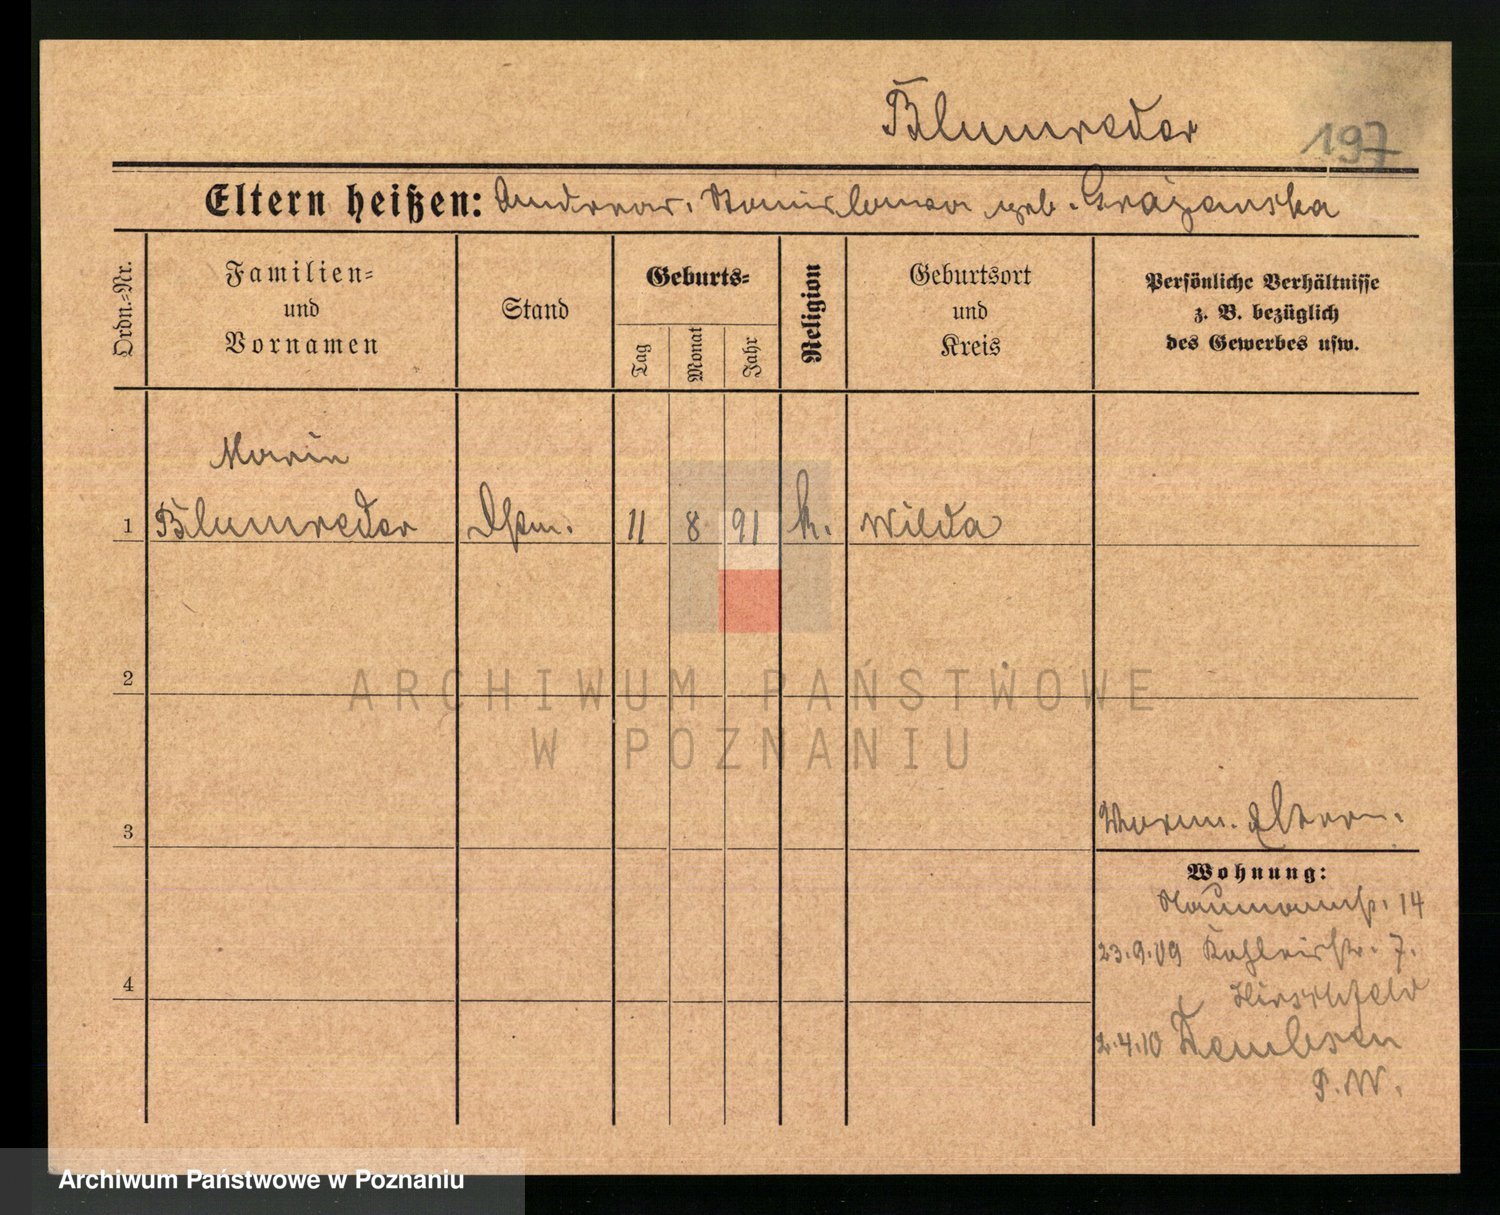 Blumreder
197
Eltern heißen: Andreas. Stanislawa geb. Grażanska
Ordn.=Nr.
Familien=
und
Vornamen
Stand
Geburts=
Tag
Monat
Jahr
Religion
Geburtsort
und
Kreis
Persönliche Verhältnisse
z. B. bezüglich
des Gewerbes usw.
Marie
1 Blumreder 11 8 91 k. Wilda
2
3 Eltern.
Wohnung:
Naumannstr. 14
23.9.09 7.
Hirschfeld
4
2.4.10 Dembsen
P. W.
ARCHIWUM PAŃSTWOWE
W POZNANIU
Archiwum Państwowe w Poznaniu